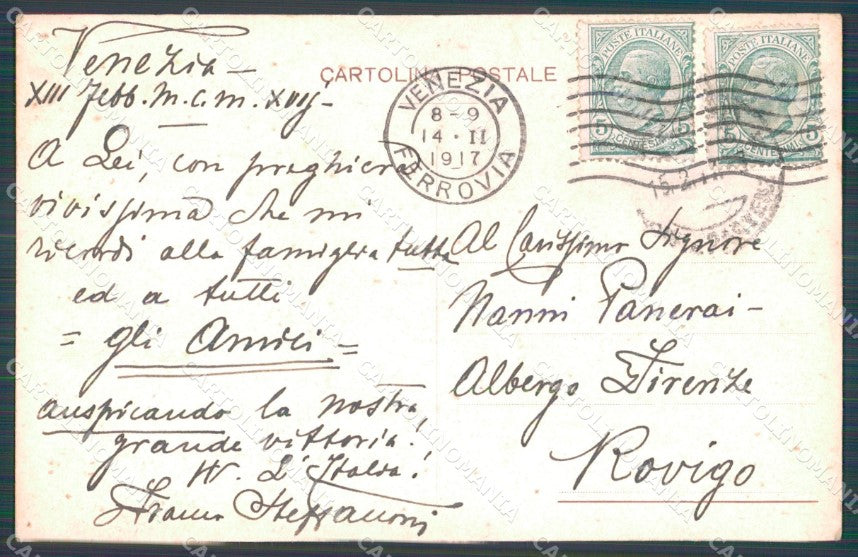 Venezia —
XIII Febb. M.C.M. XVII -
CARTOLINA POSTALE
VENEZIA
8-9
14 · II
1917
FERROVIA
POSTE ITALIANE
5 CENTESIMI 5
POSTE ITALIANE
5 CENTESIMI 5
A Lei, con preghiera
vivissima che mi
ricordi alla famiglia tutta
ed a tutti
= gli Amici =
auspicando la nostra
grande vittoria!
W. L'Italia!
Steffanoni
Al Carissimo Signore
Nanni Panerai -
Albergo Firenze
Rovigo
CARTOLINOMANIA